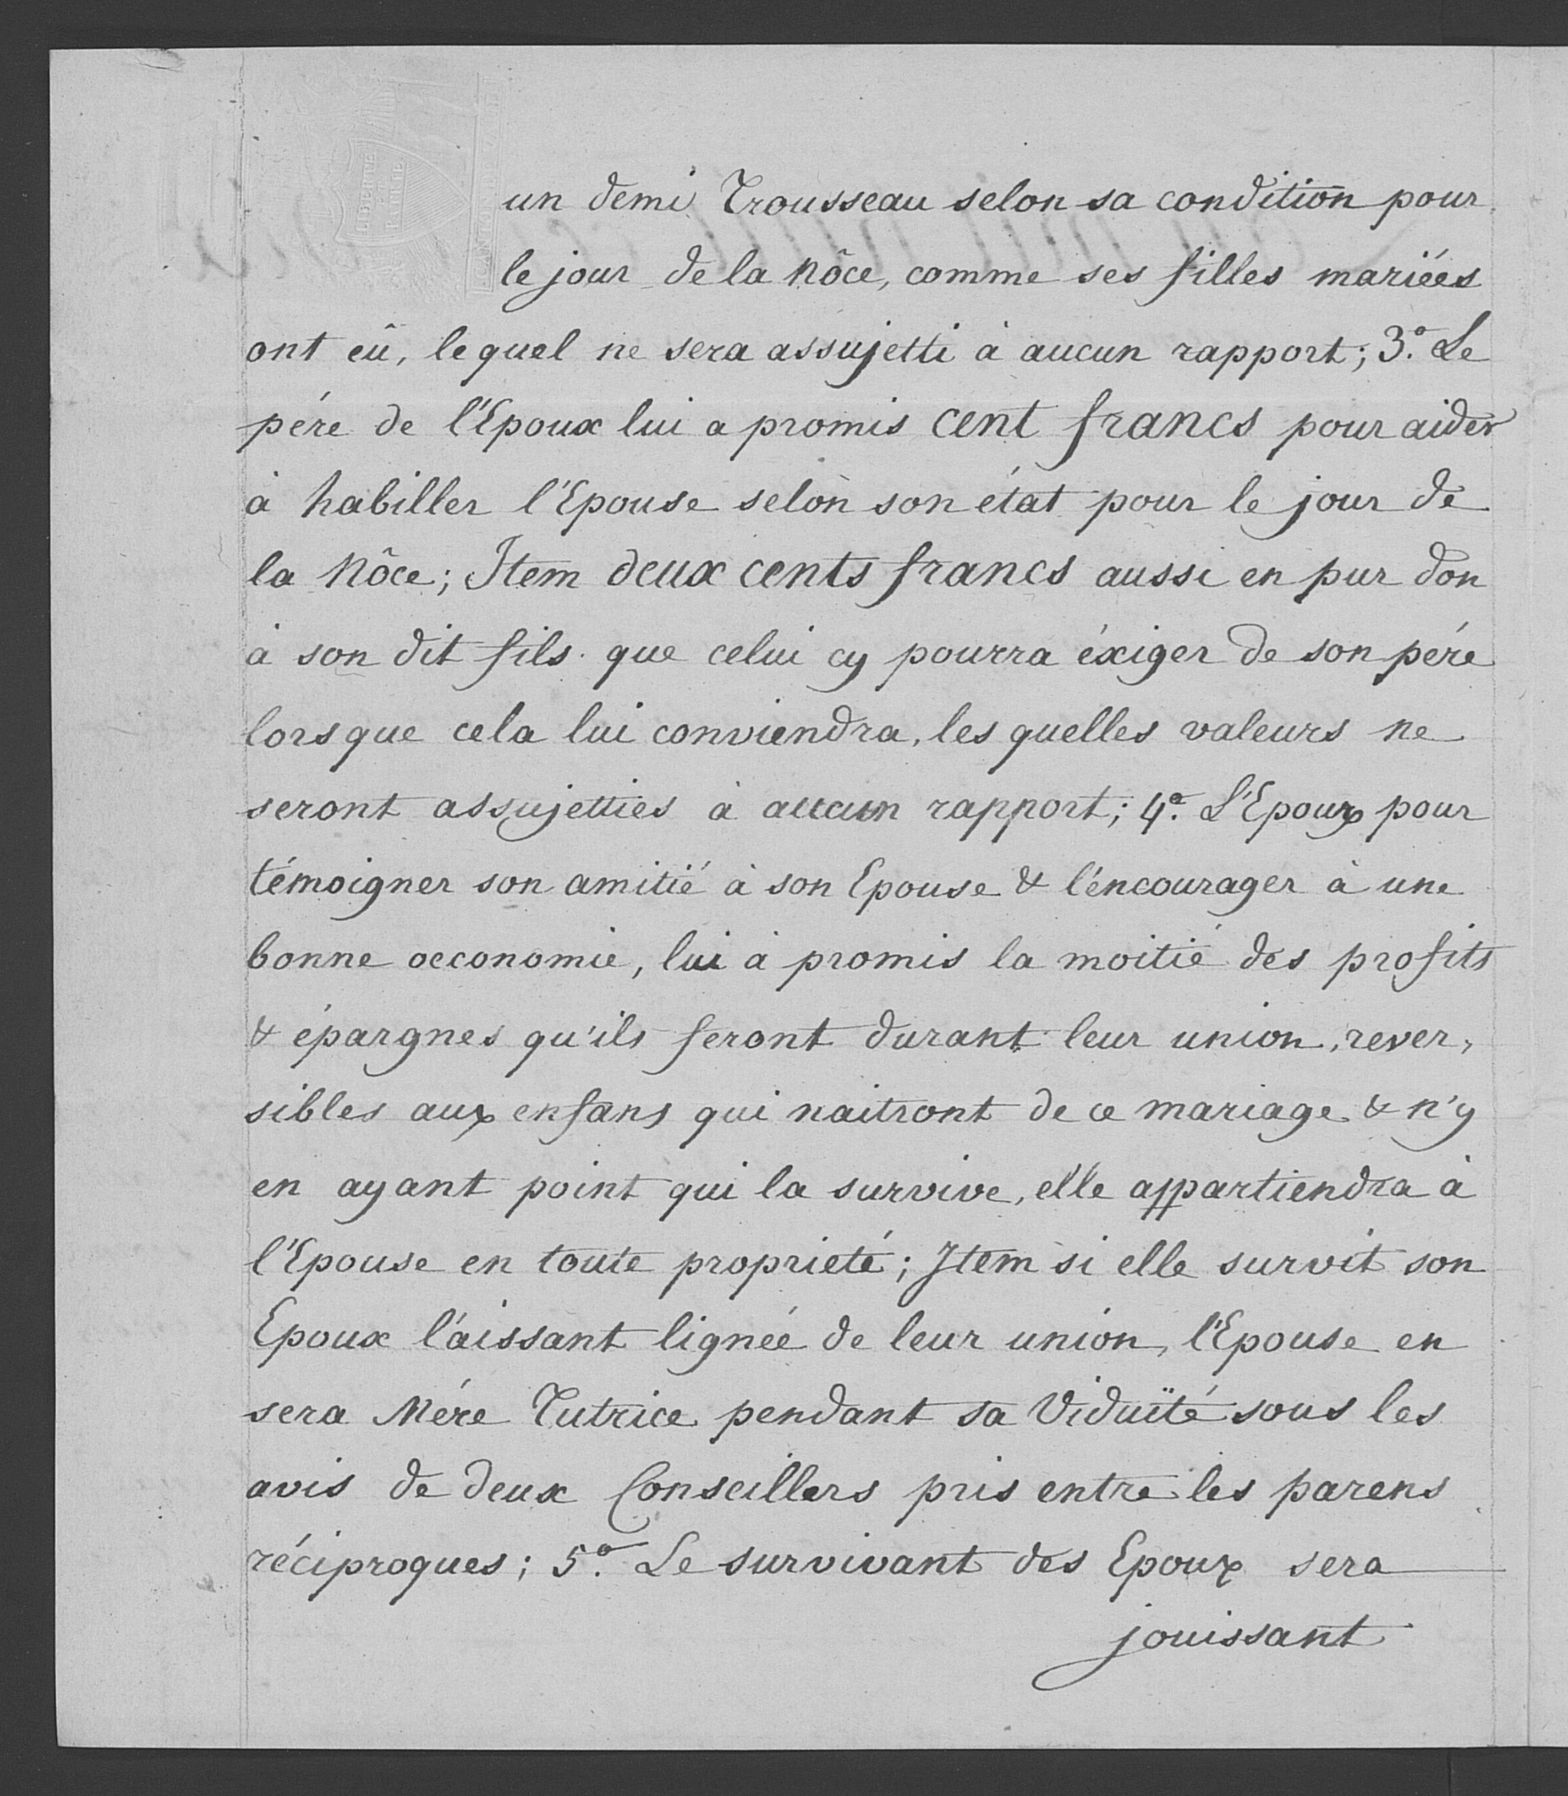 un demi Trousseau selon sa condition pour
le jour de la Nôce, comme ses filles mariées
ont eû, le quel ne sera assujetti à aucun rapport; 3.º Le
pére de l'Epoux lui a promis cent francs pour aider
à habiller l'Epouse selon son état pour le jour de
la Nôce; Item deux cents francs aussi en pur don
à son dit fils que celui cy pourra éxiger de son pére
lorsque cela lui conviendra, les quelles valeurs ne
seront assujetties à aucun rapport; 4.º L'Epoux pour
témoigner son amitié à son Epouse & l'éncourager à une
bonne oeconomie, lui à promis la moitié des profits
& épargnes qu'ils feront durant leur union, rever,
sibles aux enfans qui naitront de ce mariage & n'y
en ayant point qui la survive, elle appartiendra à
l'Epouse en toute proprieté; Item si elle survit son
Epoux l'aissant lignée de leur union, l'Epouse en
sera Mére Tutrice pendant sa Viduïté sous les
avis de deux Conseillers pris entre les parens
réciproques; 5.º Le survivant des Epoux sera
jouissant